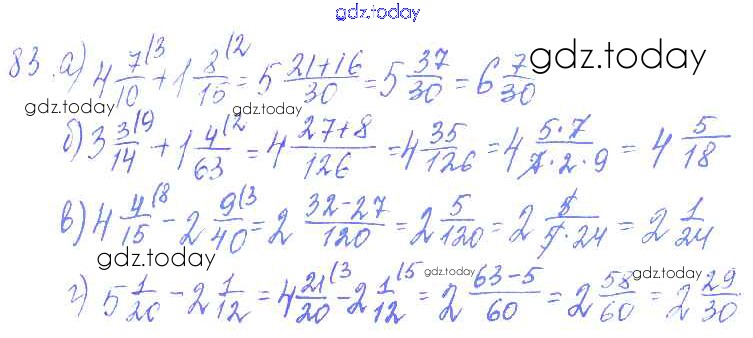 gdz.today
83. а) 4 7/10 (3 + 1 8/15 (2 = 5 (21+16)/30 = 5 37/30 = 6 7/30 gdz.today
gdz.today gdz.today
б) 3 3/14 (9 + 1 4/63 (2 = 4 (27+8)/126 = 4 35/126 = 4 (5·7)/(7·2·9) = 4 5/18
в) 4 4/15 (8 - 2 9/40 (3 = 2 (32-27)/120 = 2 5/120 = 2 5/(5·24) = 2 1/24
gdz.today gdz.today gdz.today
г) 5 1/20 - 2 1/12 = 4 21/20 (3 - 2 1/12 (5 = 2 (63-5)/60 = 2 58/60 = 2 29/30